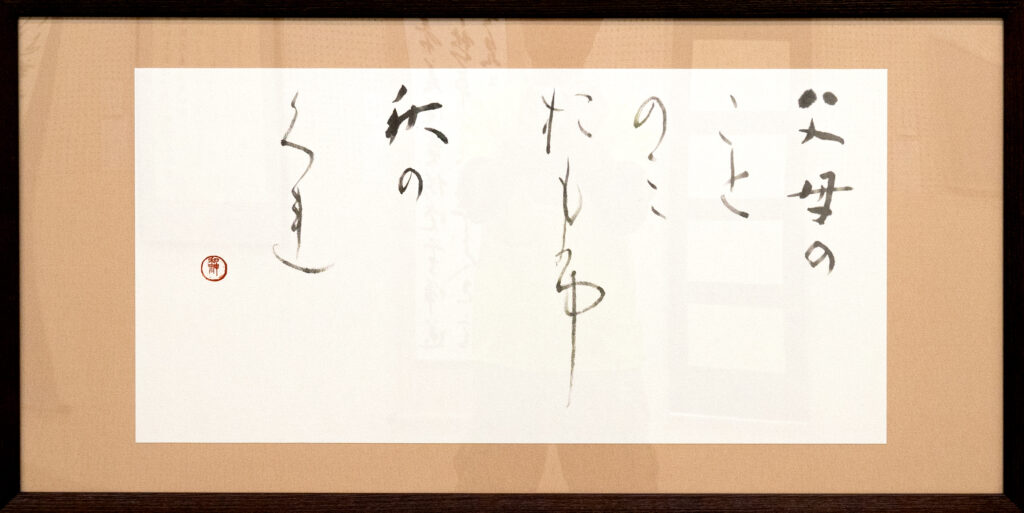 父母の
こと
のミ
おもふ
秋の
くれ